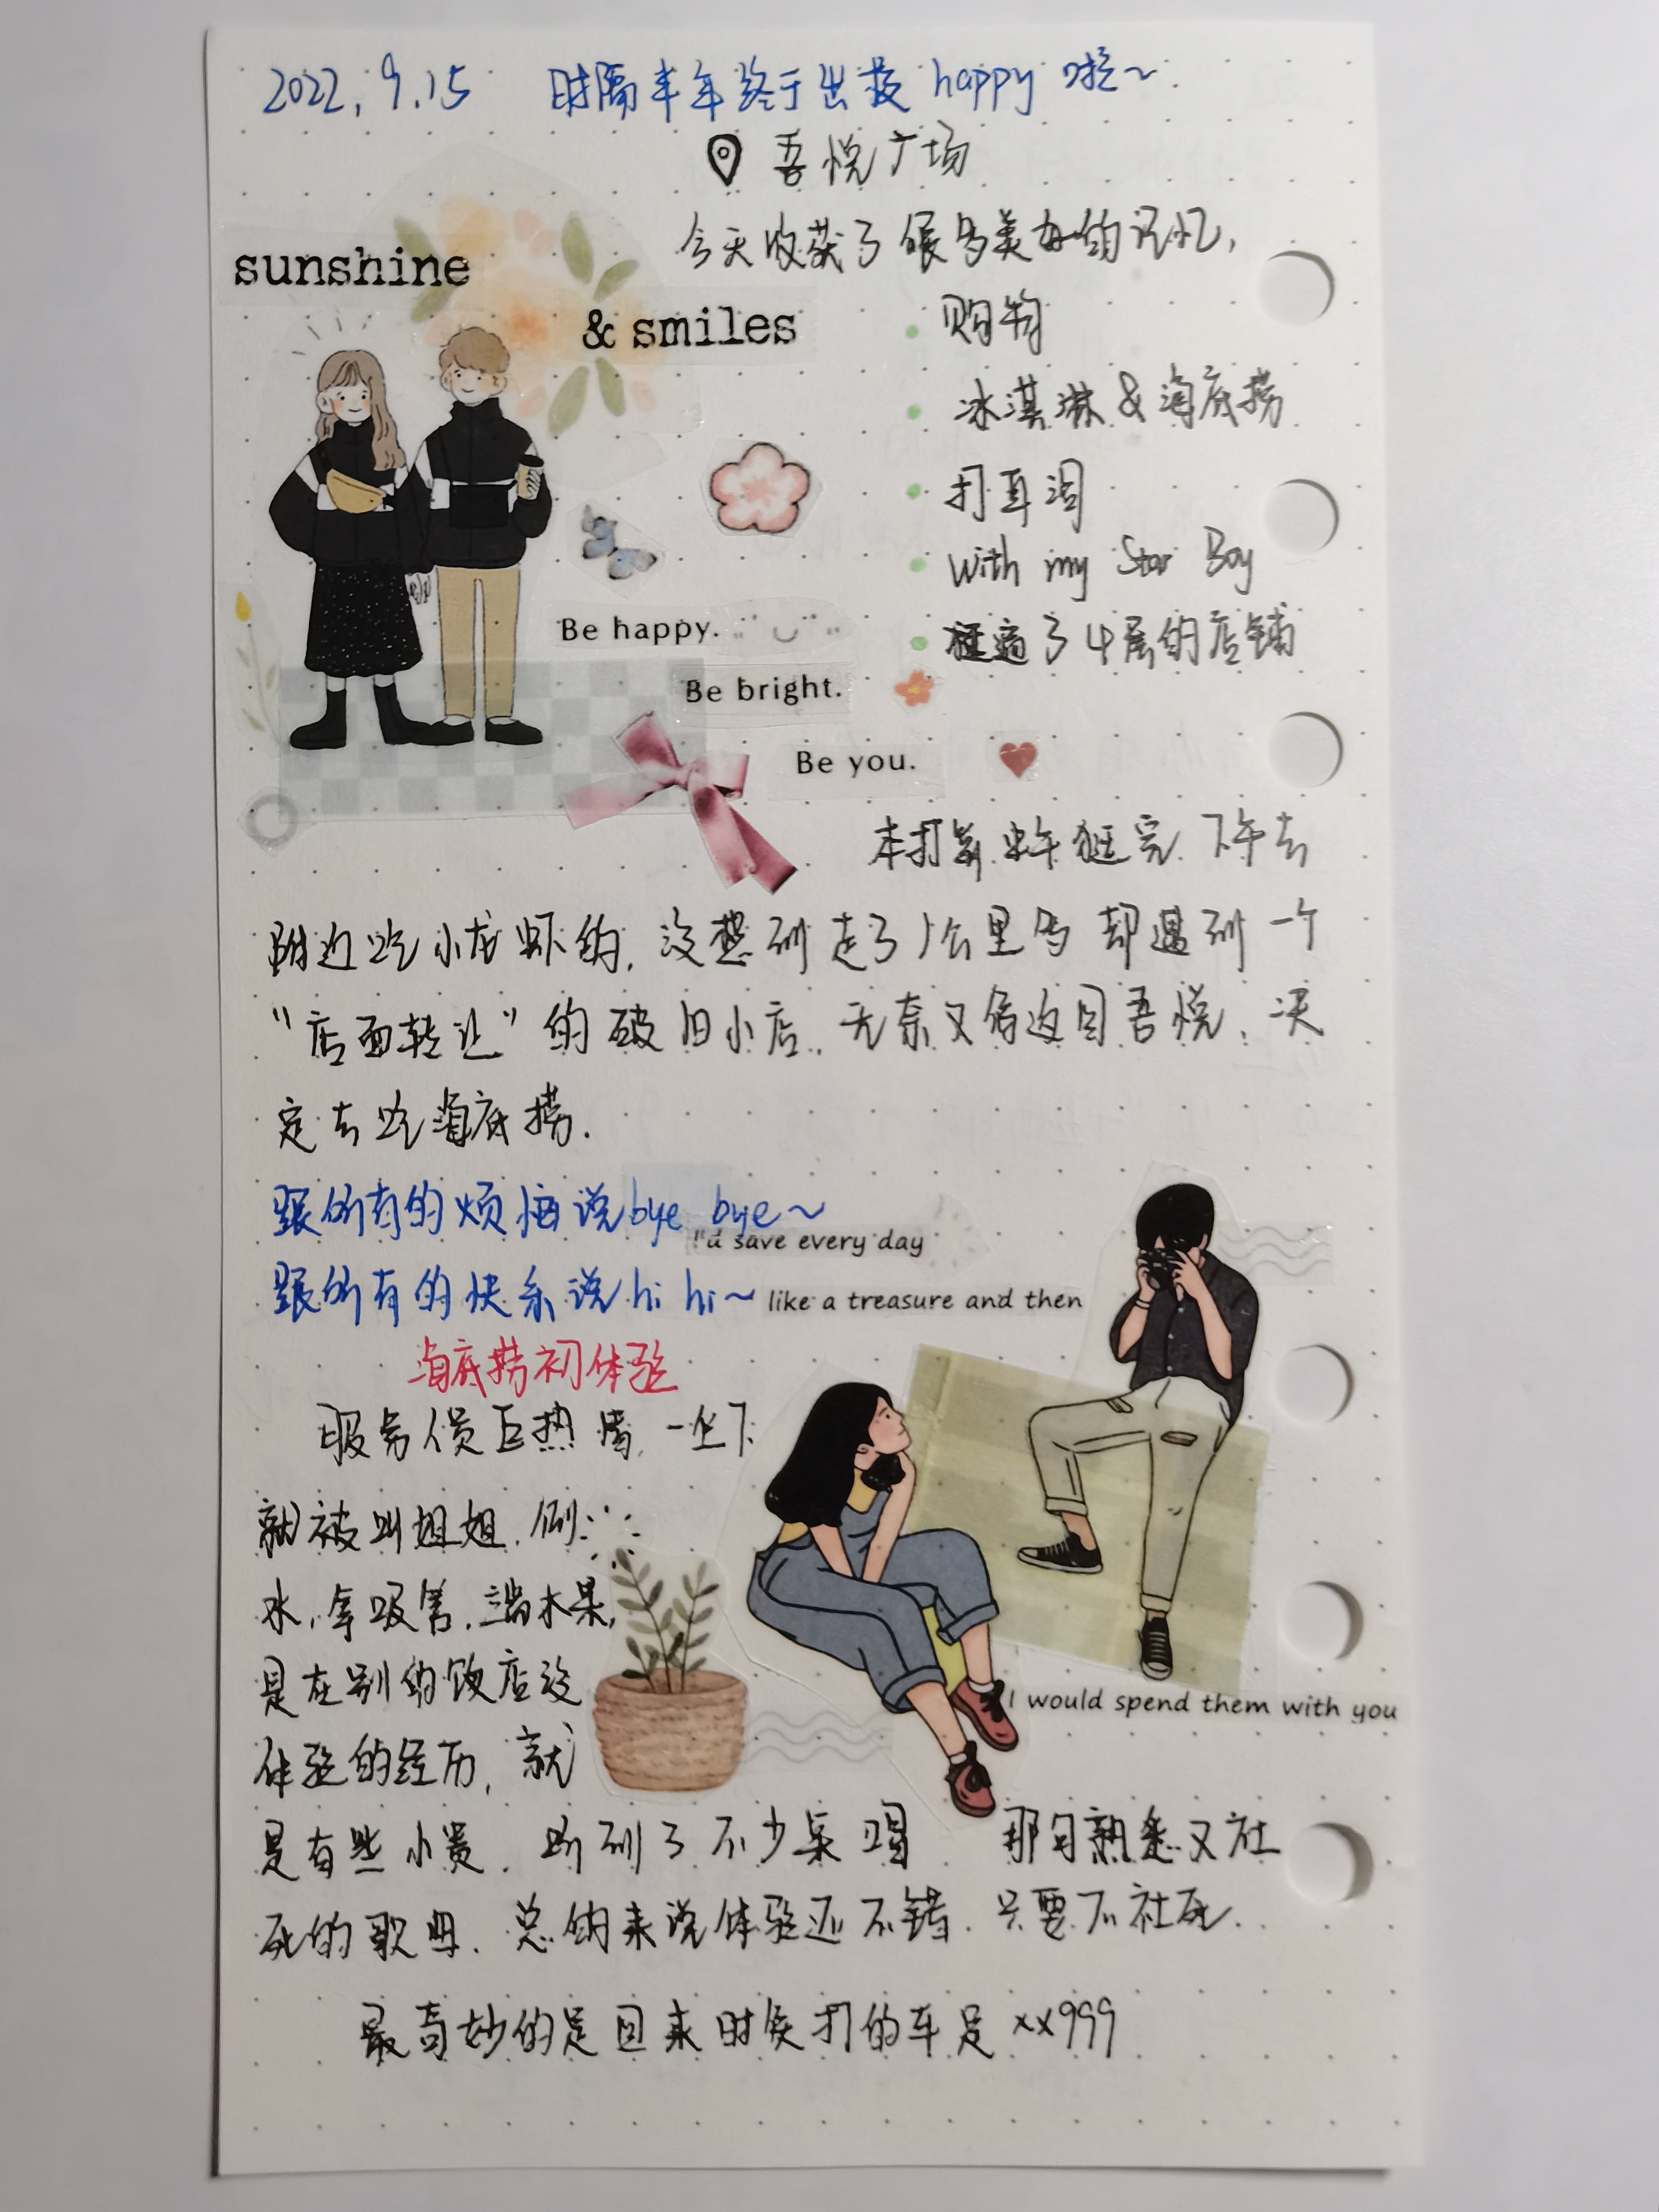 2022.9.15 时隔半年终于出发 happy 啦~
吾悦广场
今天收获了很多美好的记忆,
sunshine
& smiles
购物
冰淇淋 & 海底捞
打耳洞
With my Star Boy
逛遍了4层的店铺
Be happy.
Be bright.
Be you.
本打算中午逛完下午去
附近吃小龙虾的, 没想到走了1公里多却遇到一个
“店面转让”的破旧小店. 无奈又得返回吾悦, 决
定去吃海底捞.
跟所有的烦恼说bye bye~
I'd save every day
跟所有的快乐说hi hi~
like a treasure and then
海底捞初体验
服务员巨热情, 一坐下
就被叫姐姐, 倒
水, 拿吸管, 端水果,
是在别的饭店没
I would spend them with you
体验的经历, 就
是有些小贵. 听到了不少桌唱 那句熟悉又社
死的歌曲. 总的来说体验还不错. 只要不社死.
最奇妙的是回来时候打的车是xx999